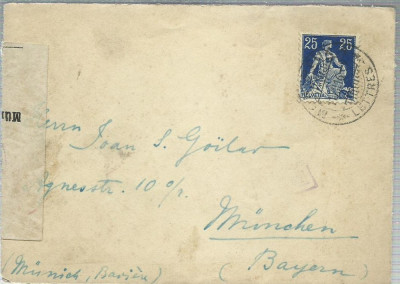 25 25
HELVETIA
LETTRES
Mün
Herrn Joan S. Göilav
Agnesstr. 10 0/r.
München
(Bayern)
(Münich, Bavière)